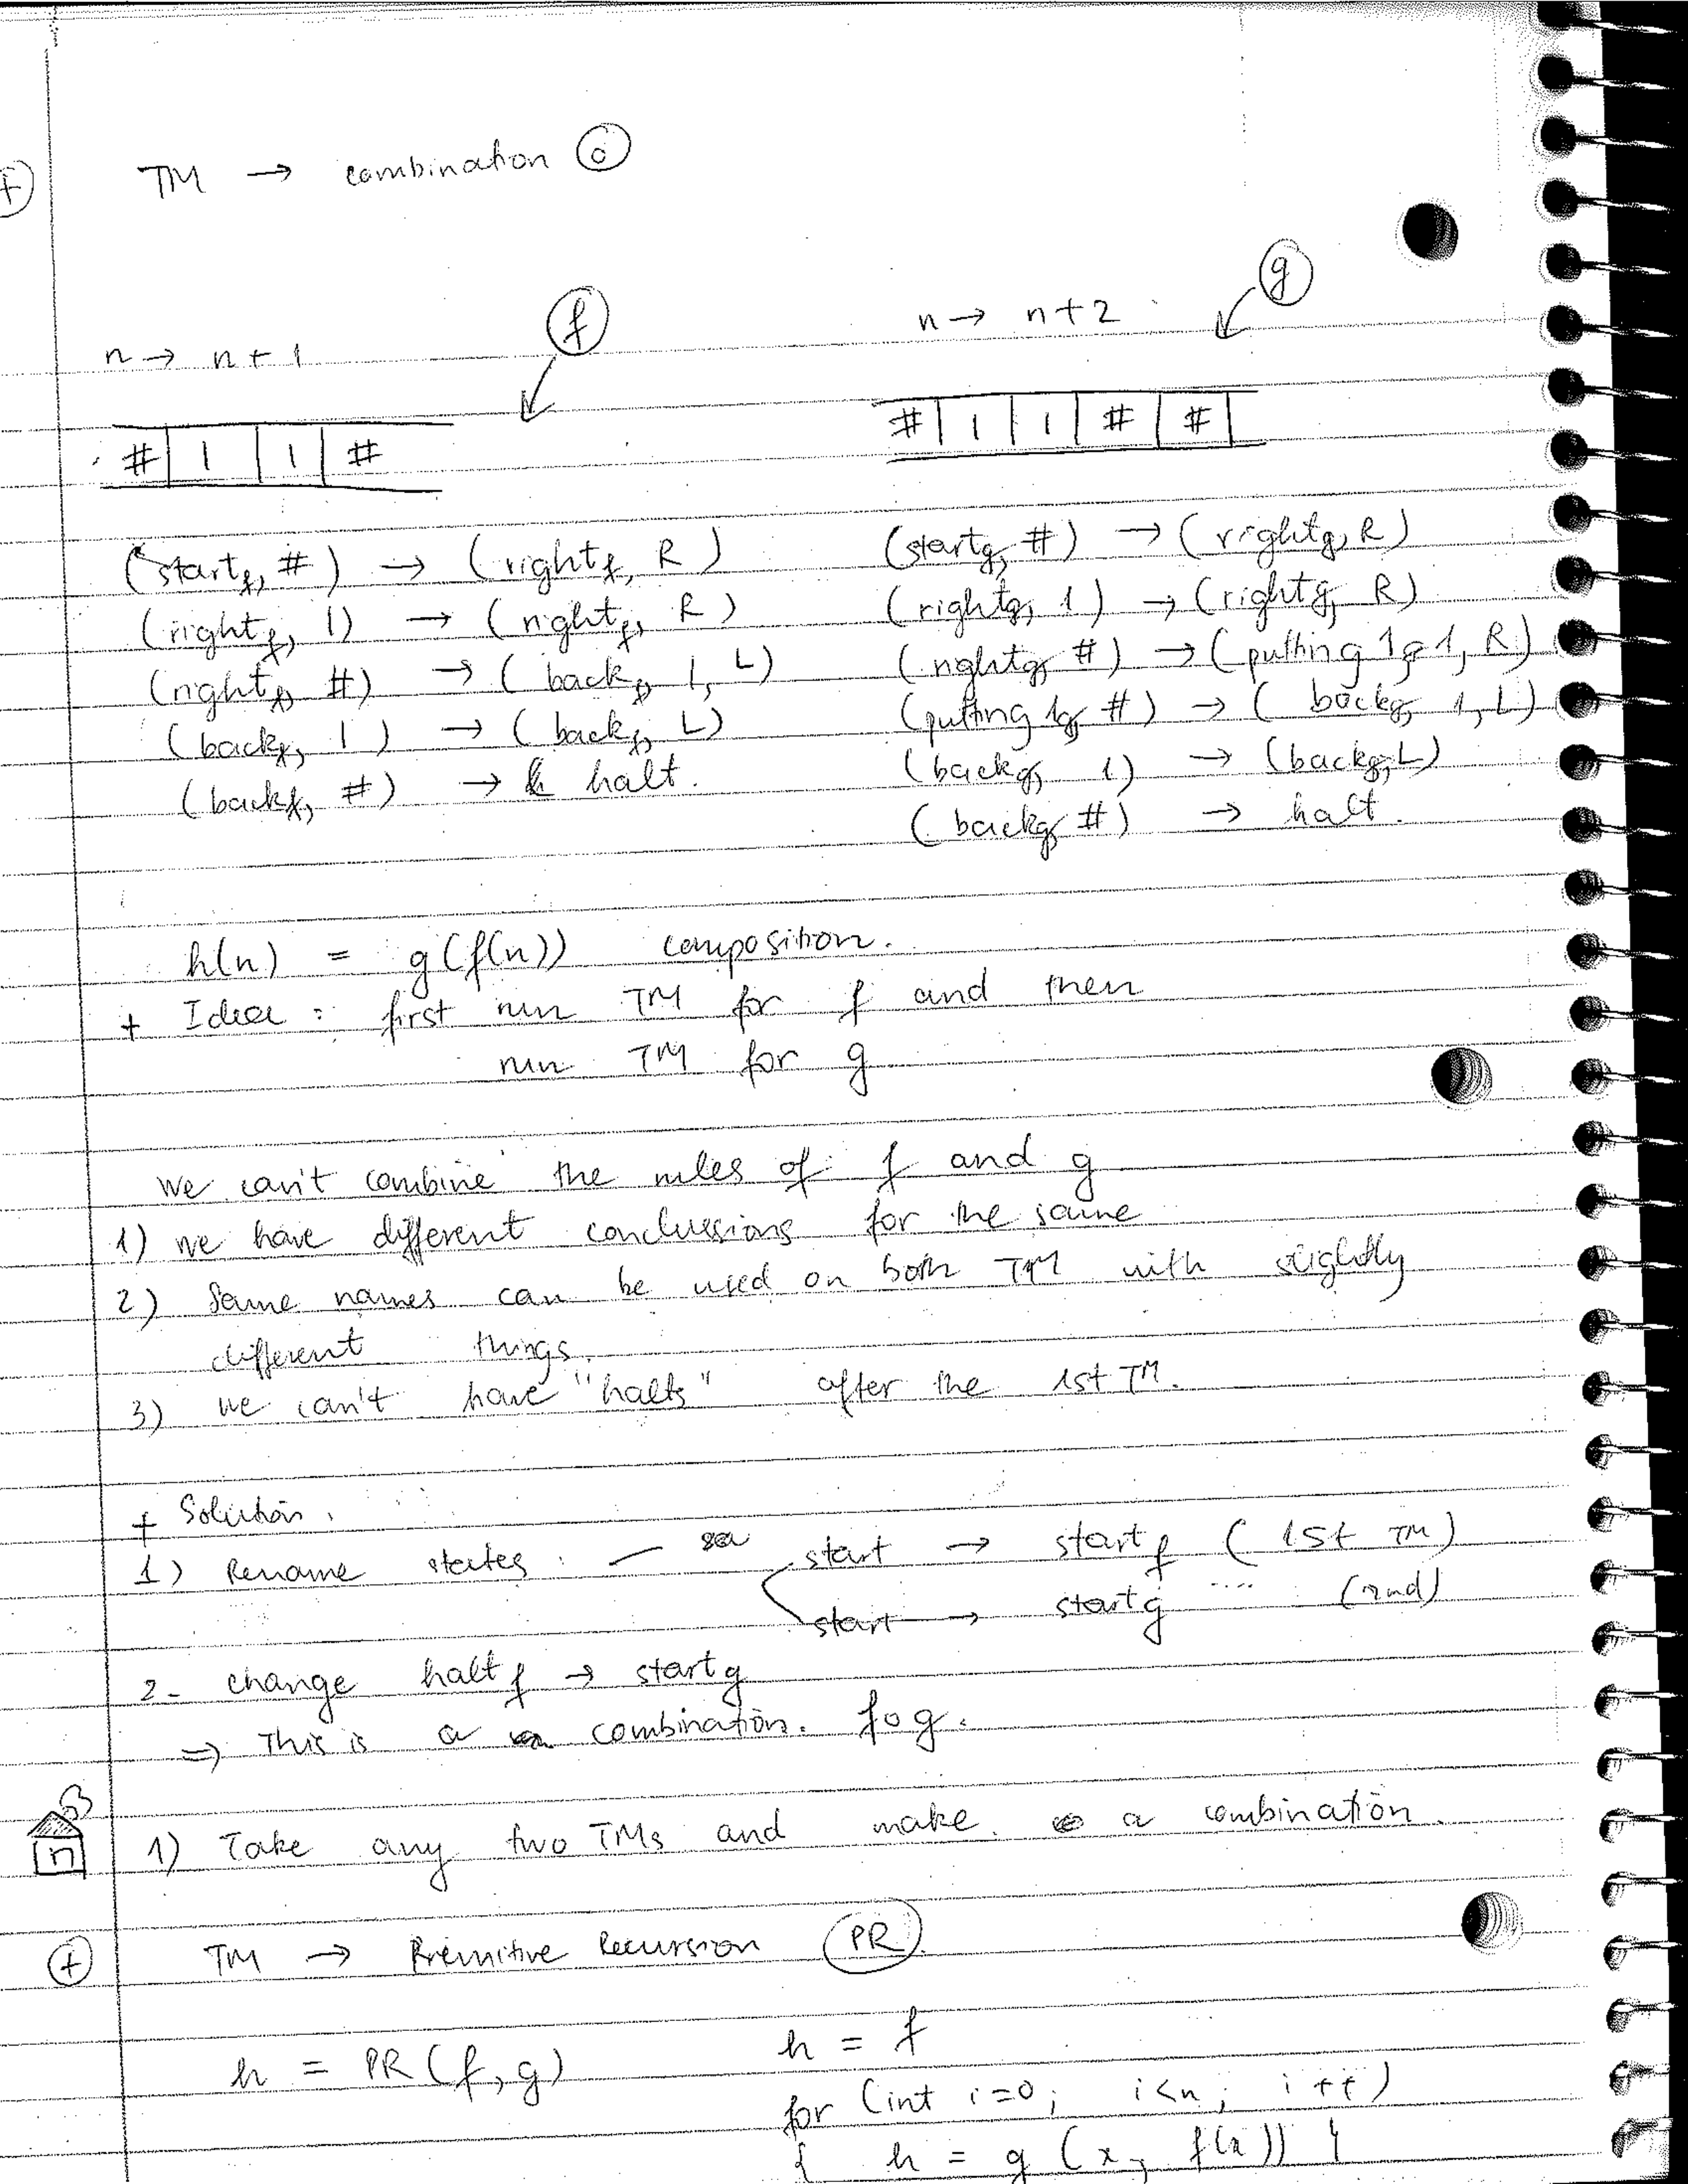 + TM → combination o
f g
n → n + 1 n → n + 2
# | 1 | 1 | # # | 1 | 1 | # | # |
(start f, #) → (right f, R) (start g, #) → (right g, R)
(right f, 1) → (right f, R) (right g, 1) → (right g, R)
(right f, #) → (back f, 1, L) (right g, #) → (putting 1 g 1, R)
(back f, 1) → (back f, L) (putting 1 g, #) → (back g, 1, L)
(back f, #) → halt. (back g, 1) → (back g, L)
(back g, #) → halt.
h(n) = g(f(n)) composition.
+ Idea : first run TM for f and then
run TM for g
we can't combine the rules of f and g
1) we have different conclussions for the same
2) Same names can be used on both TM with slightly
different things.
3) we can't have "halts" after the 1st TM.
+ Solution.
1) Rename states : start → start f (1st TM)
start → start g .... (2nd)
2- change halt f → start g
⇒ This is a combination. f∘g.
1) Take any two TMs and make a combination.
+ TM → Premitive Recursion PR
h = PR(f, g) h = f
for (int i=0; i<n; i++)
{ h = g (x, f(x)) }